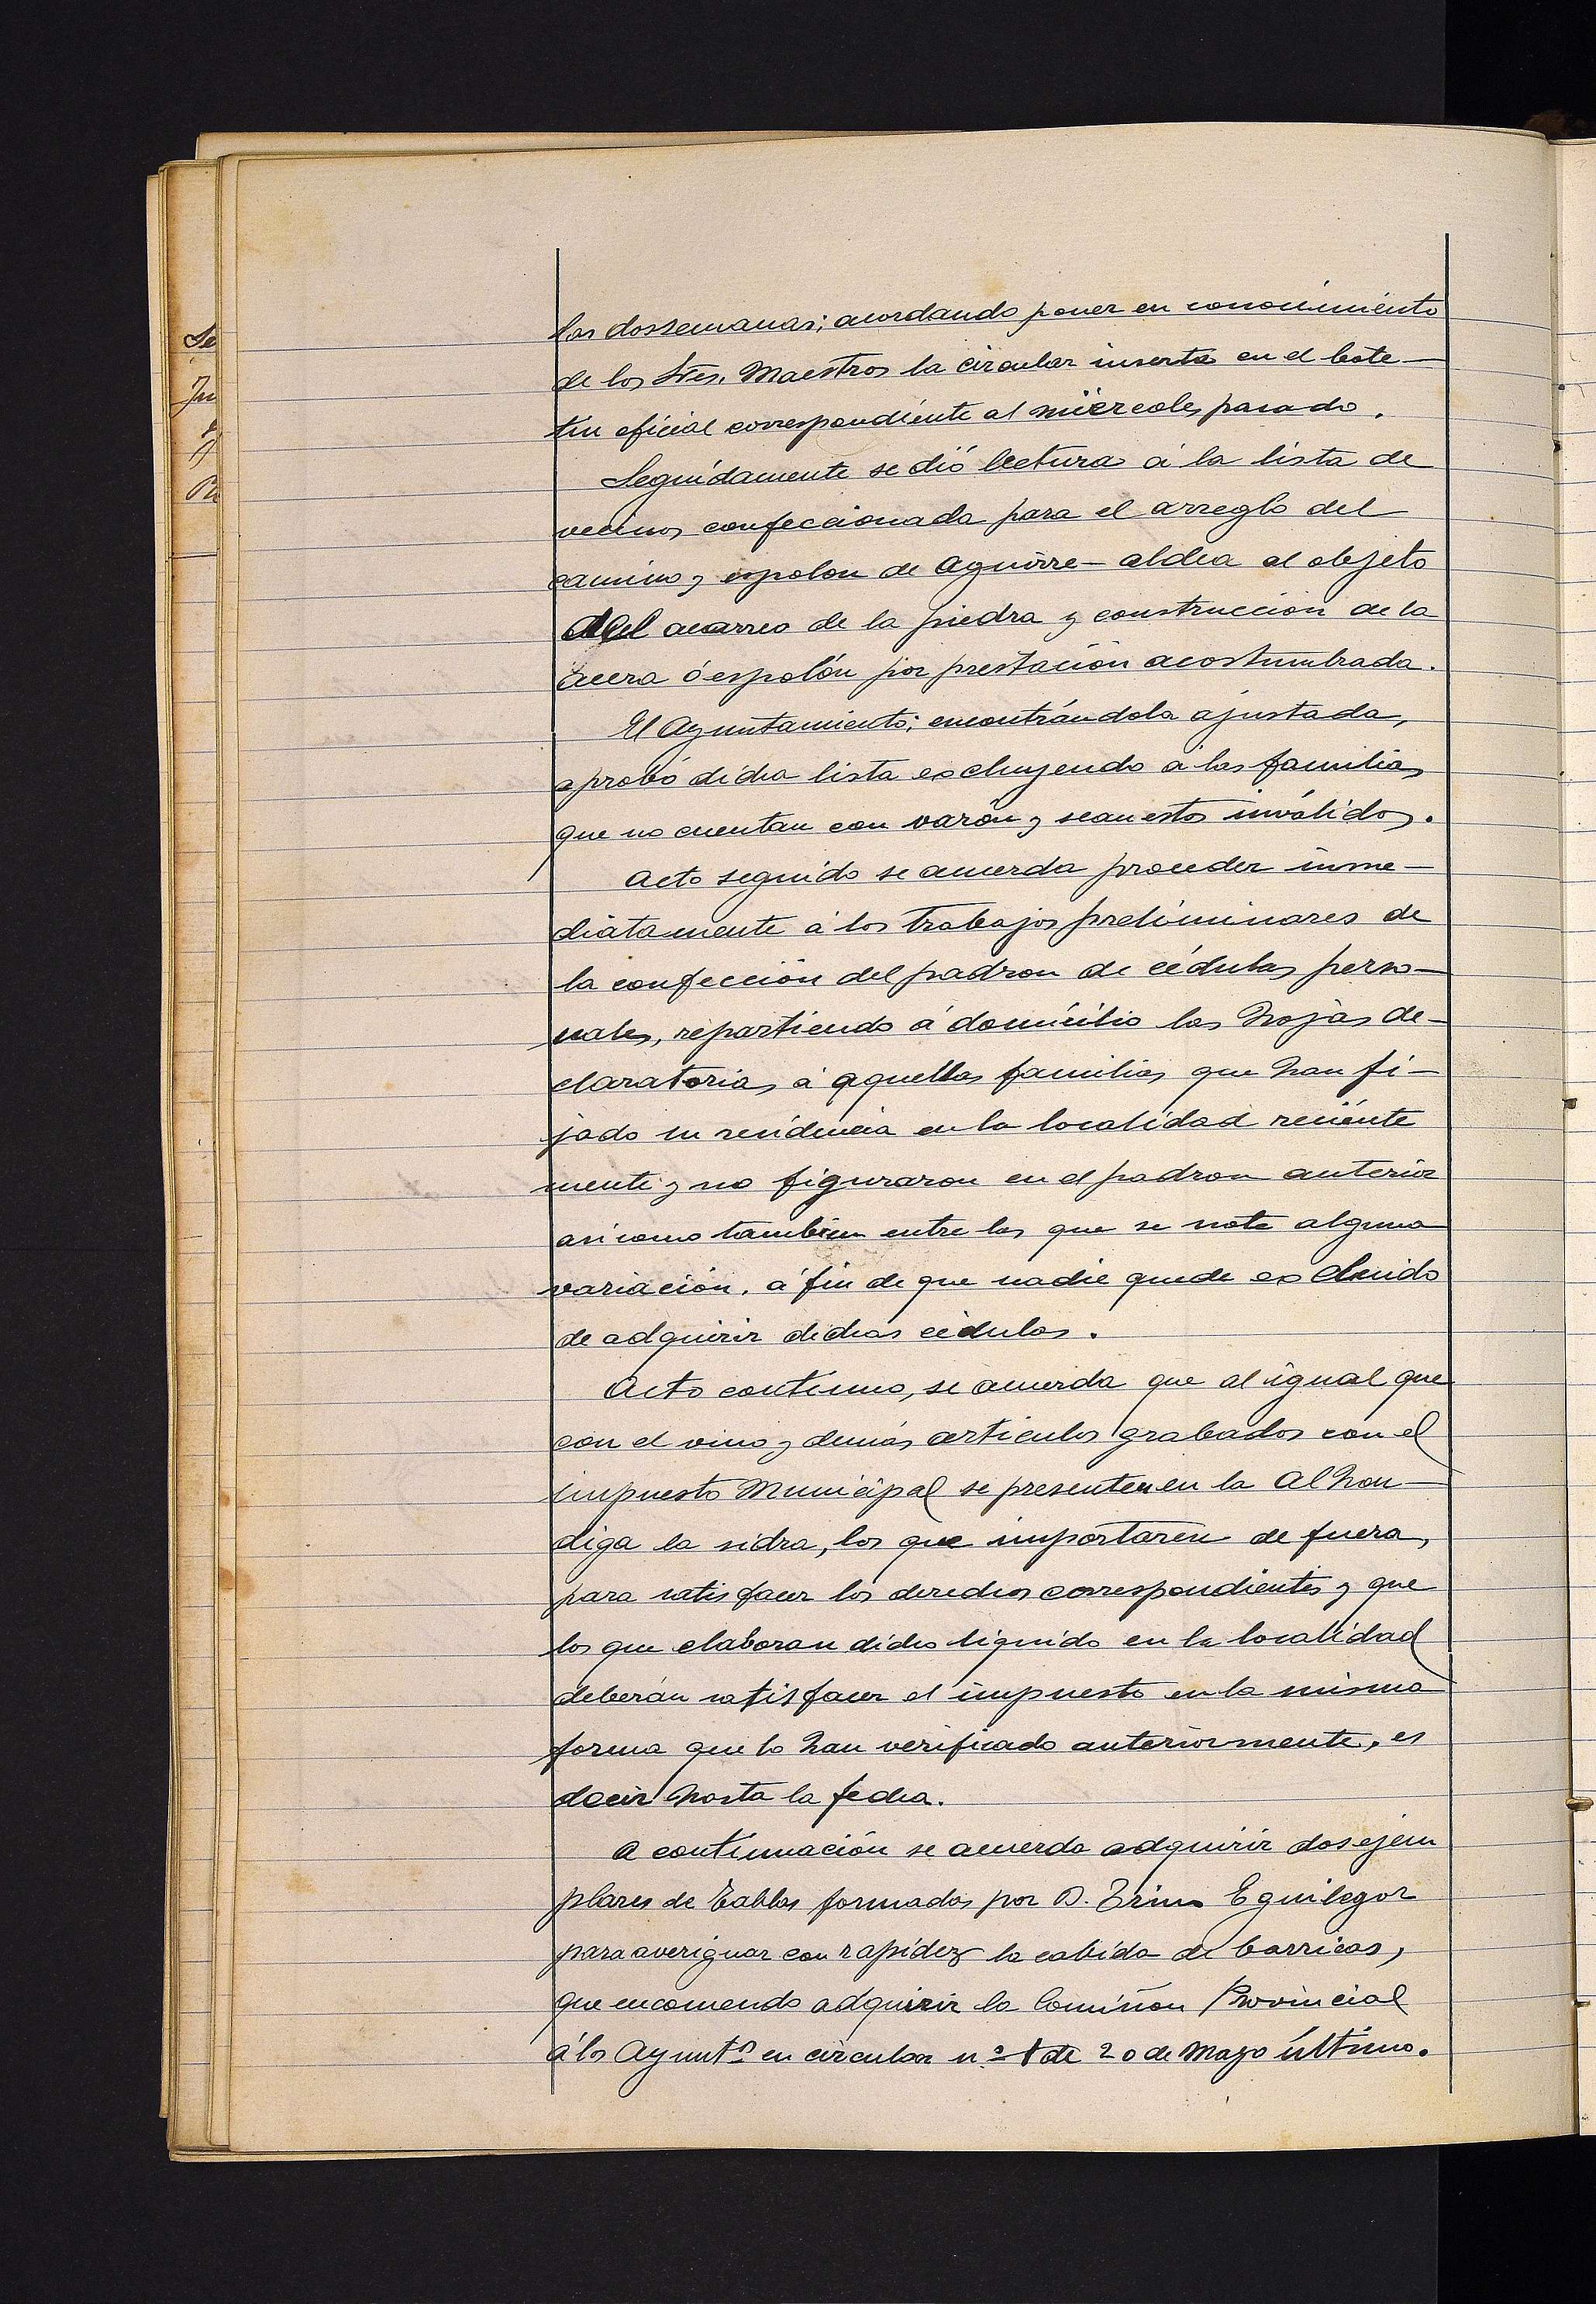 las dos semanas; acordando poner en conocimiento
de los Sres. Maestros la circular inserta en el bole-
tin oficial correspondiente al miércoles pasado.
Seguidamente se dió lectura á la lista de
vecinos confeccionada para el arreglo del
camino y espolon de Aguirre-aldea al objeto
del acarreo de la piedra y construcción de la
acera ó espolón por prestación acostumbrada.
El Ayuntamiento; encontrándola ajustada,
aprobó dicha lista excluyendo á las familias
que no cuentan con varón y sean estos inválidos.
Acto seguido se acuerda proceder inme-
diatamente á los trabajos preliminares de
la confección del padron de cédulas perso-
nales, repartiendo á domicilio las hojas de-
claratorias á aquellas familias que han fi-
jado su residencia en la localidad reciente
mente y no figuraron en el padron anterior
asi como tambien entre las que se note alguna
variación, á fin de que nadie quede excluido
de adquirir dichas cédulas.
Acto continuo, se acuerda que al igual que
con el vino y demás articulos grabados con el
impuesto Municipal se presenten en la Alhon-
diga la sidra, los que importaren de fuera,
para satisfacer los derechos correspondientes y que
los que elaboran dicho liquido en la localidad
deberán satisfacer el impuesto en la misma
forma que lo han verificado anteriormente, es
decir hasta la fecha.
A continuación se acuerda adquirir dos ejem
plares de Tablas formadas por D. Trino Eguilegor
para averiguar con rapidez la cabida de barricas,
que encomendo adquirir la Comision Provincial
á los Ayuntos en circular n.º 1 de 20 de Mayo último.
Se